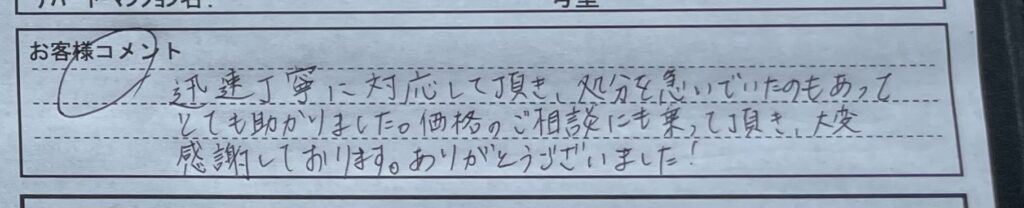 アパート・マンション名:　号室
お客様コメント
迅速丁寧に対応して頂き、処分を急いでいたのもあって
とても助かりました。価格のご相談にも乗って頂き、大変
感謝しております。ありがとうございました!